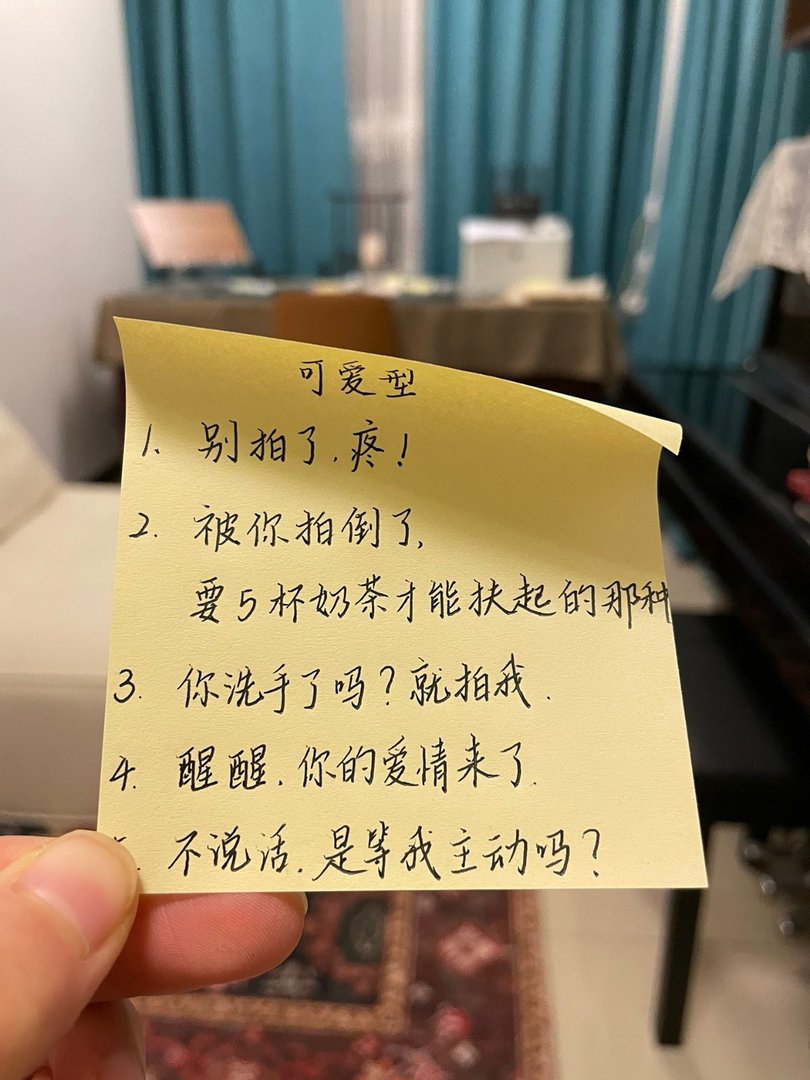 可爱型
1. 别拍了，疼！
2. 被你拍倒了，
要5杯奶茶才能扶起的那种
3. 你洗手了吗？就拍我．
4. 醒醒．你的爱情来了．
不说话．是等我主动吗？